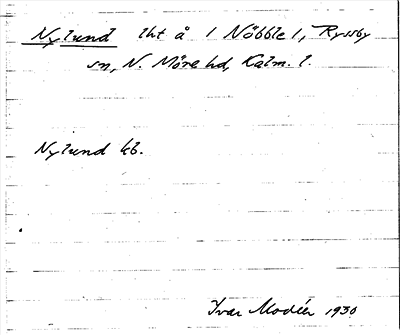 Nylund lht å 1 Nöbble 1, Ryssby
sn, N. Möre hd, Kalm. l.
Nylund kb.
Ivar Modéer 1930